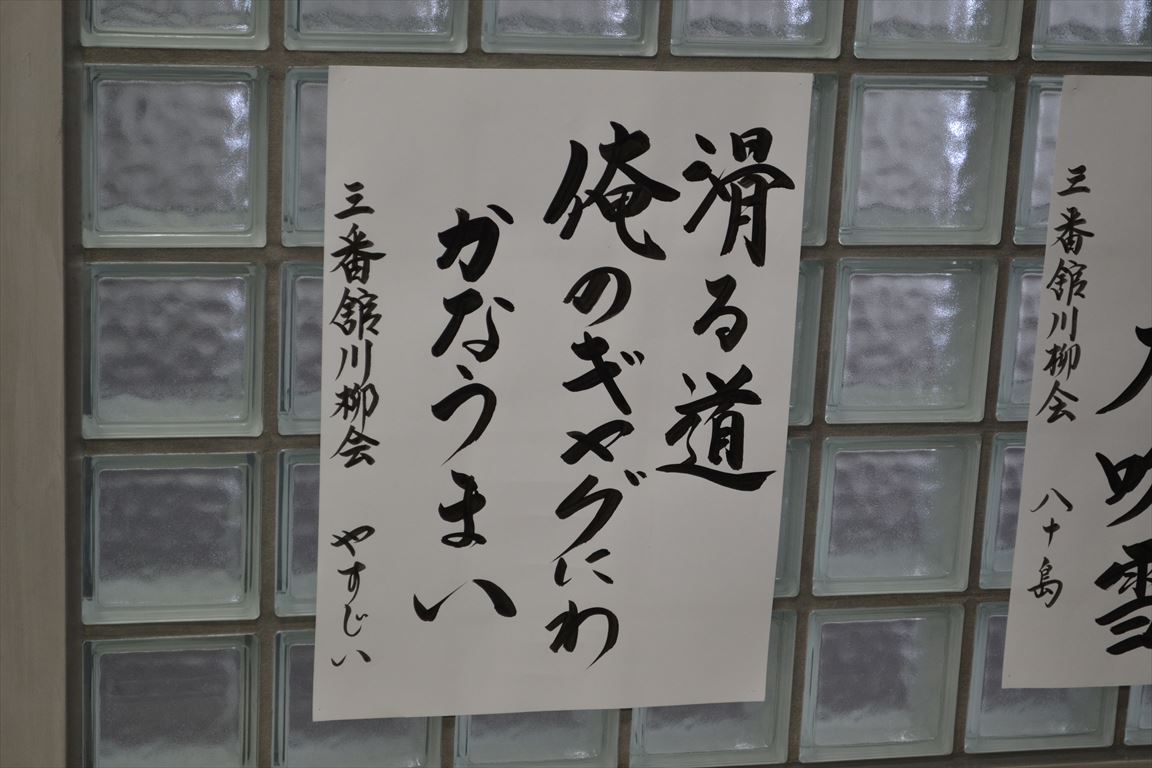 滑る道
俺のギャグにわ
かなうまい
三番舘川柳会 やすじい
吹雪
三番舘川柳会 八十島